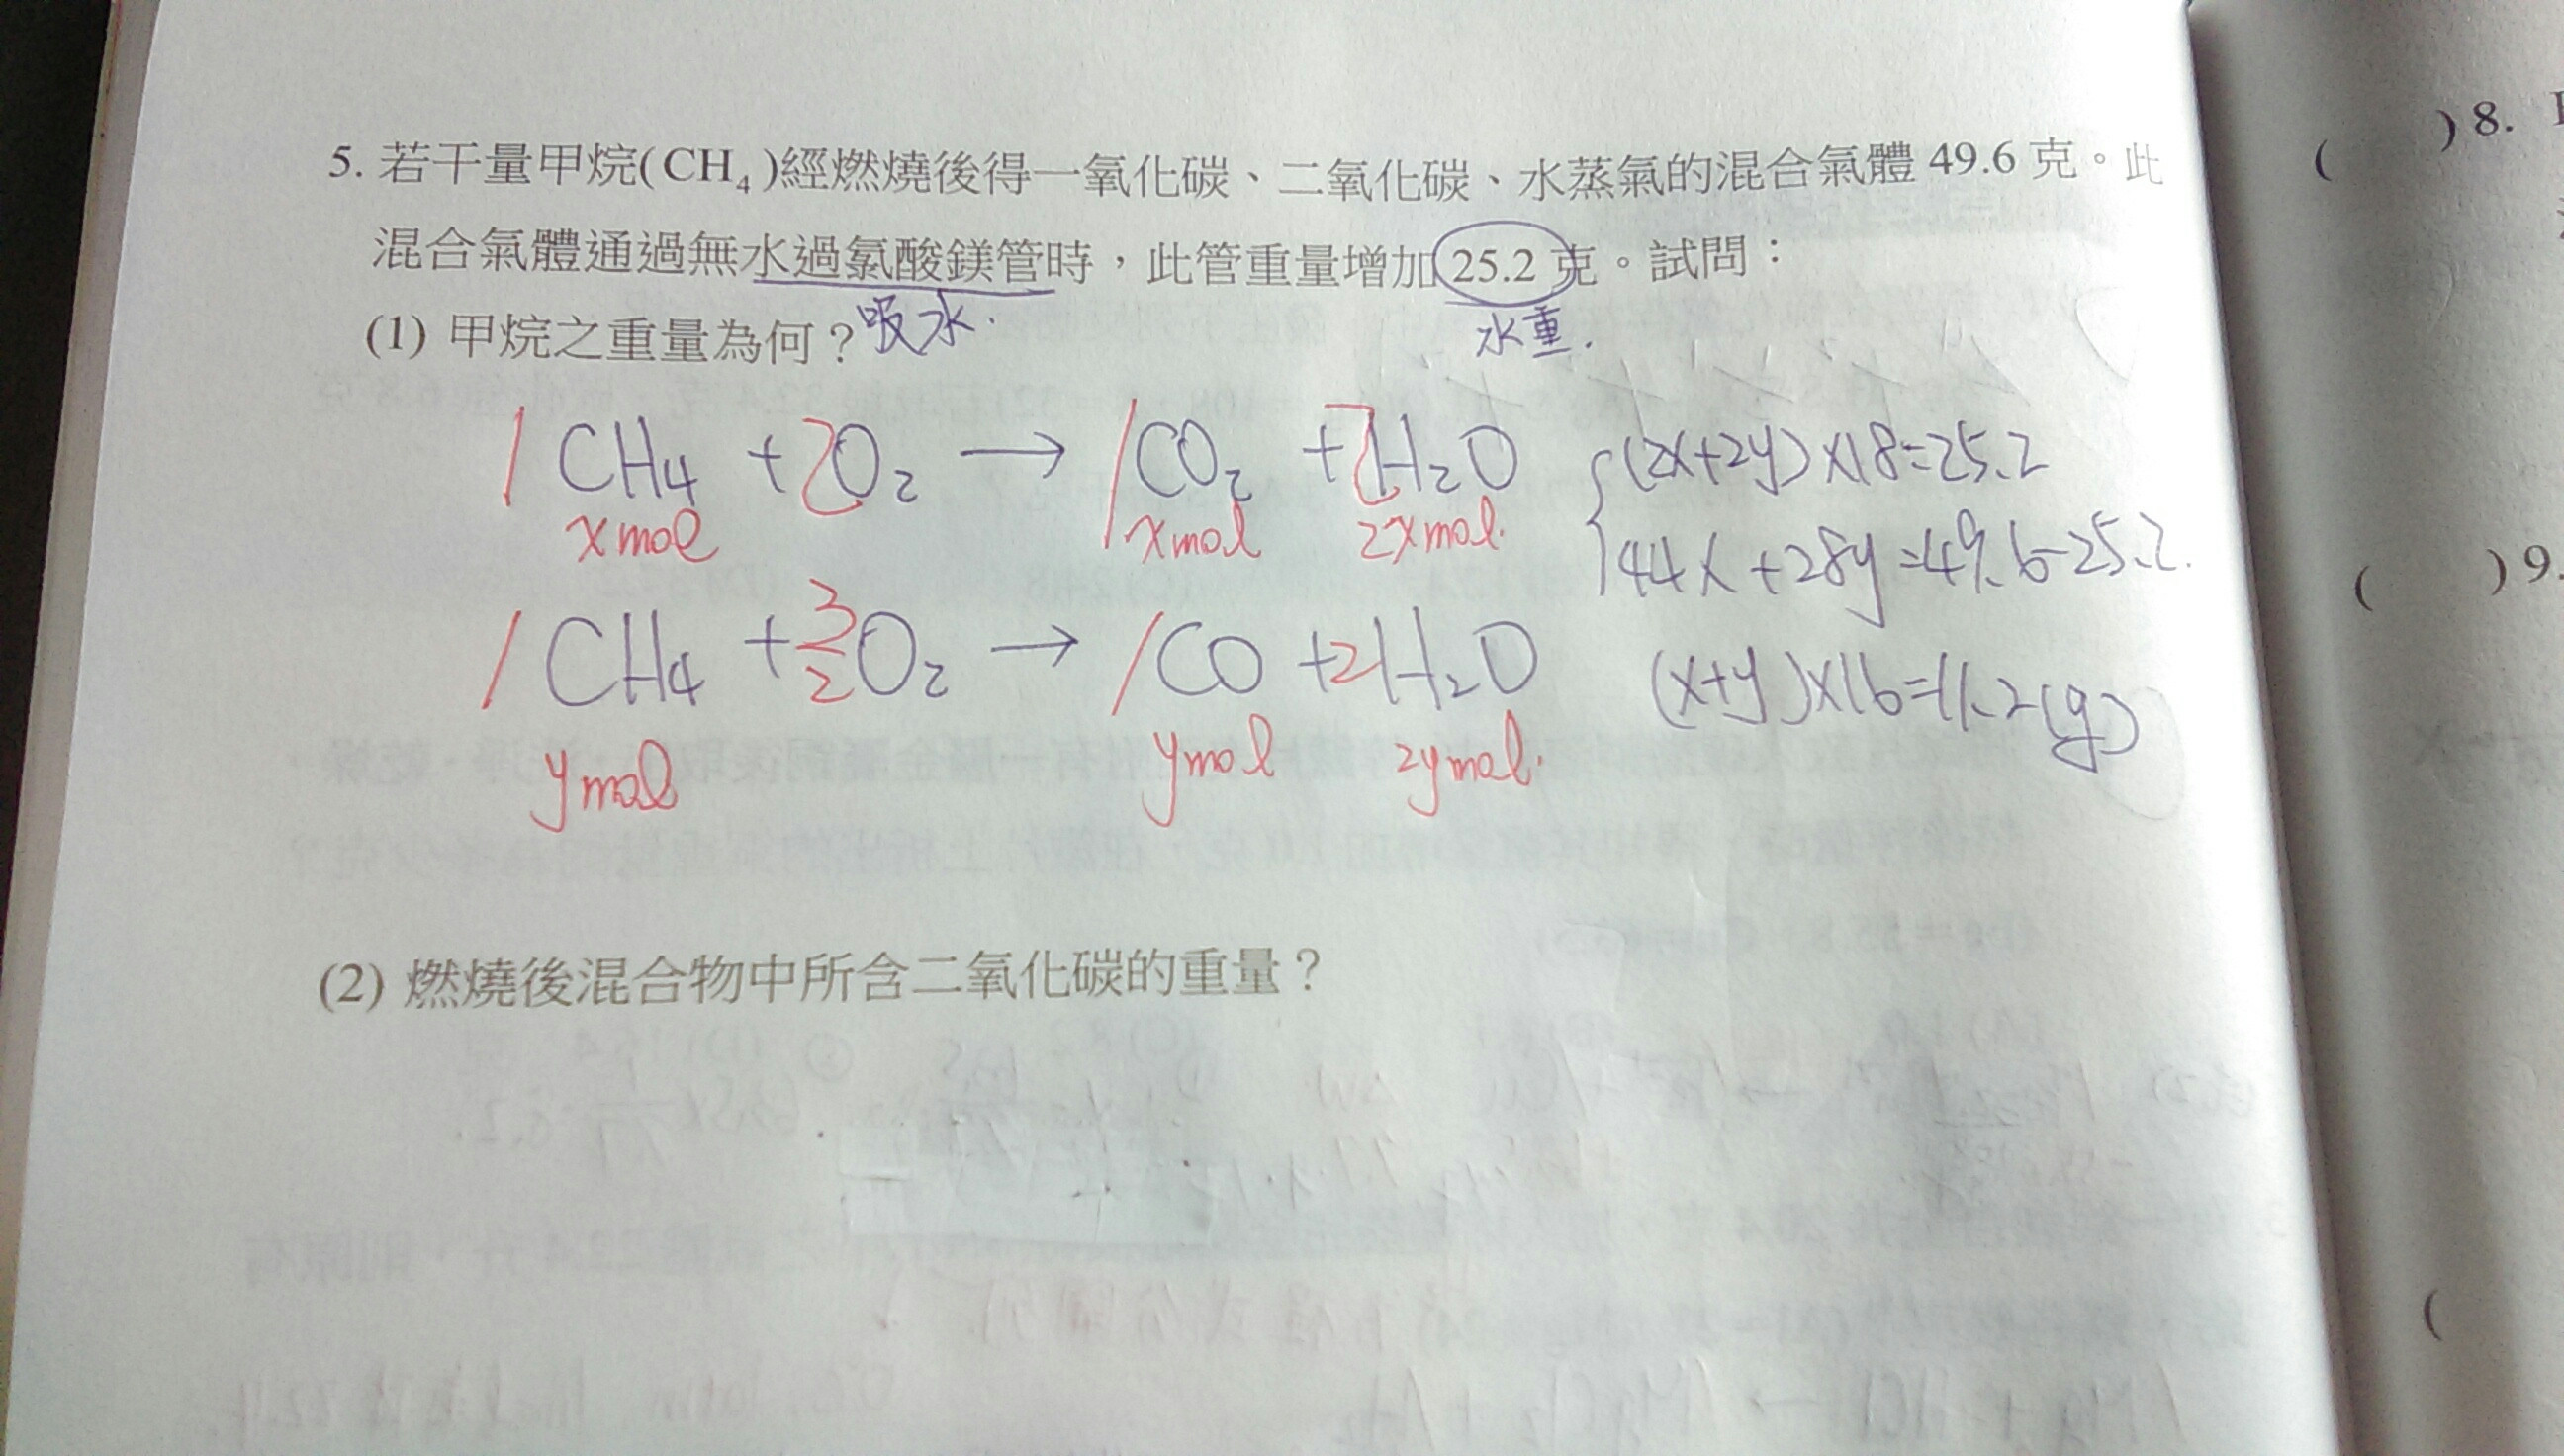 5. 若干量甲烷(CH₄)經燃燒後得一氧化碳、二氧化碳、水蒸氣的混合氣體 49.6 克。此
混合氣體通過無水過氯酸鎂管時，此管重量增加 25.2 克。試問：
吸水.
水重.
(1) 甲烷之重量為何？
1CH₄ + 2O₂ → 1CO₂ + 2H₂O
x mol x mol 2x mol.
(2x+2y)×18=25.2
44x+28y=49.6-25.2.
1CH₄ + 3/2 O₂ → 1CO + 2H₂O
y mol y mol 2y mol.
(x+y)×16=11.2(g)
(2) 燃燒後混合物中所含二氧化碳的重量？
( ) 8.
( ) 9.
(